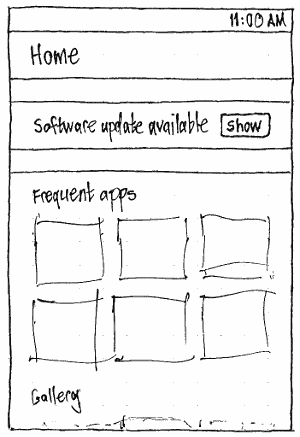 11:00 AM
Home
Software update available show
Frequent apps
Gallery